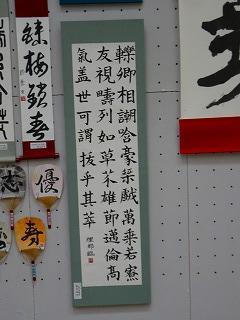 轢卿相謿哈豪桀戲萬乘若寮
友視疇列如草芥雄節邁倫高
氣盖世可謂拔乎其萃
臨
春
志
優
寿